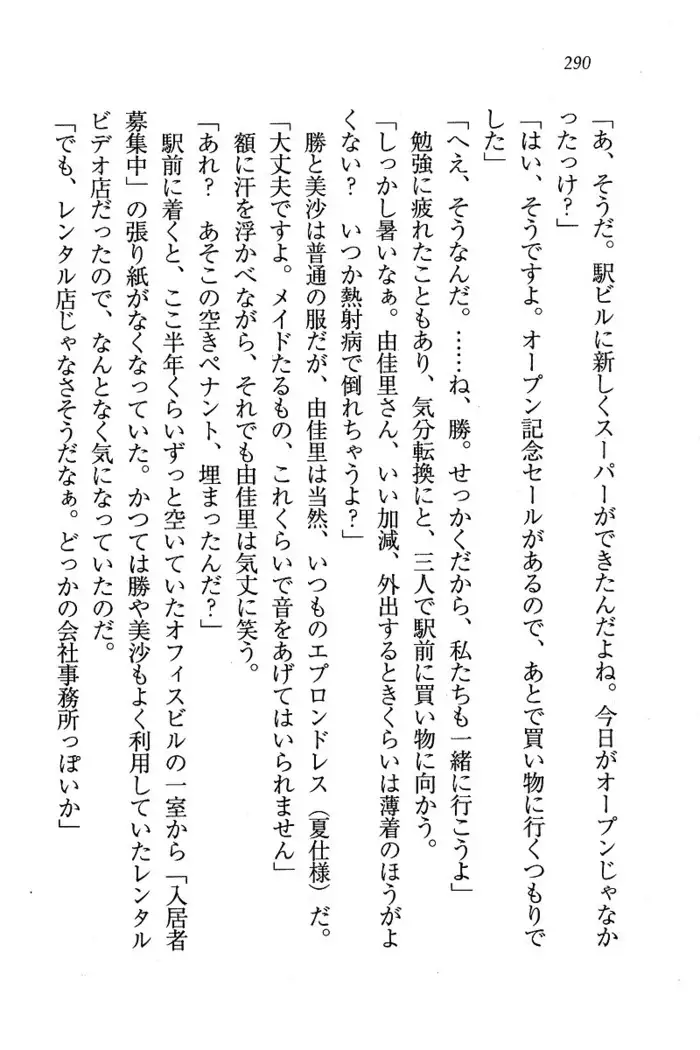 290
「あ、そうだ。駅ビルに新しくスーパーができたんだよね。今日がオープンじゃなか
ったっけ？」
「はい、そうですよ。オープン記念セールがあるので、あとで買い物に行くつもりで
した」
「へえ、そうなんだ。……ね、勝。せっかくだから、私たちも一緒に行こうよ」
勉強に疲れたこともあり、気分転換にと、三人で駅前に買い物に向かう。
「しっかし暑いなぁ。由佳里さん、いい加減、外出するときくらいは薄着のほうがよ
くない？　いつか熱射病で倒れちゃうよ？」
勝と美沙は普通の服だが、由佳里は当然、いつものエプロンドレス（夏仕様）だ。
「大丈夫ですよ。メイドたるもの、これくらいで音をあげてはいられません」
額に汗を浮かべながら、それでも由佳里は気丈に笑う。
「あれ？　あそこの空きペナント、埋まったんだ？」
駅前に着くと、ここ半年くらいずっと空いていたオフィスビルの一室から「入居者
募集中」の張り紙がなくなっていた。かつては勝や美沙もよく利用していたレンタル
ビデオ店だったので、なんとなく気になっていたのだ。
「でも、レンタル店じゃなさそうだなぁ。どっかの会社事務所っぽいか」